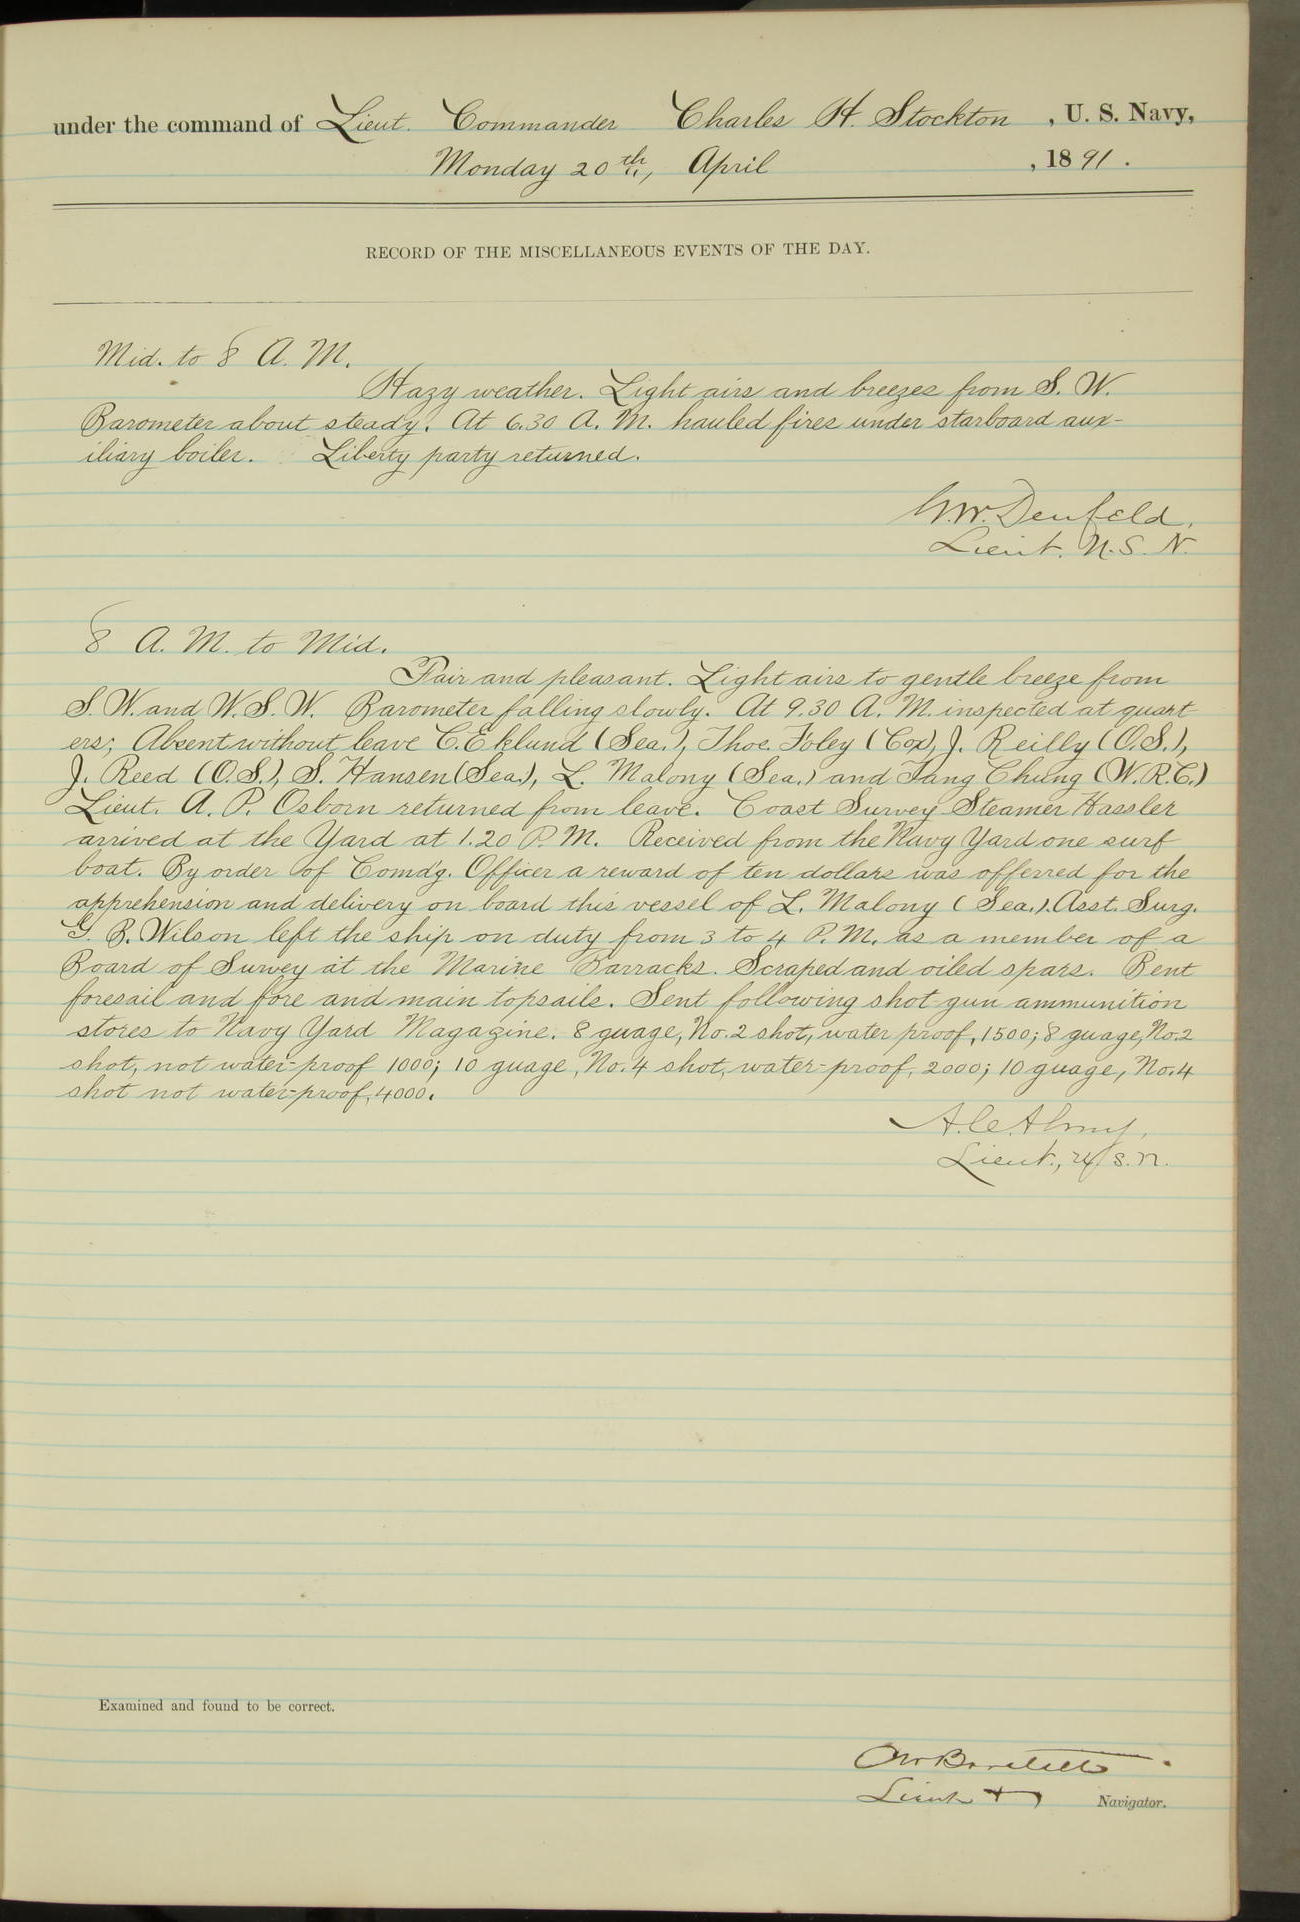 under the command of Lieut. Commander Charles H. Stockton , U. S. Navy,
Monday 20th, April , 1891.
RECORD OF THE MISCELLANEOUS EVENTS OF THE DAY.
Mid. to 8 A. M.
Hazy weather. Light airs and breezes from S. W.
Barometer about steady. At 6.30 A. M. hauled fires under starboard aux-
iliary boiler. Liberty party returned.
G.W. Denfeld,
Lieut. U.S.N.
8 A. M. to Mid.
Fair and pleasant. Light airs to gentle breeze from
S. W. and W. S. W. Barometer falling slowly. At 9.30 A. M. inspected at quart
ers; Absent without leave C. Eklund (Sea.), Thos. Foley (Cox), J. Reilly (O.S.),
J. Reed (O.S.), S. Hansen (Sea.), L. Malony (Sea.) and Fang Chung (W.R.C.)
Lieut. A. P. Osborn returned from leave. Coast Survey Steamer Hassler
arrived at the Yard at 1.20 P. M. Received from the Navy Yard one surf
boat. By order of Comd'g. Officer a reward of ten dollars was offerred for the
apprehension and delivery on board this vessel of L. Malony (Sea.). Asst. Surg.
G. B. Wilson left the ship on duty from 3 to 4 P. M. as a member of a
Board of Survey at the Marine Barracks. Scraped and oiled spars. Bent
foresail and fore and main topsails. Sent following shot gun ammunition
stores to Navy Yard Magazine. 8 guage, No. 2 shot, water proof, 1500; 8 guage, No. 2
shot, not water-proof 1000; 10 guage, No. 4 shot, water-proof, 2000; 10 guage, No. 4
shot not water-proof, 4000.
A.C. Almy,
Lieut., U.S.N.
Examined and found to be correct.
Lieut +
Navigator.